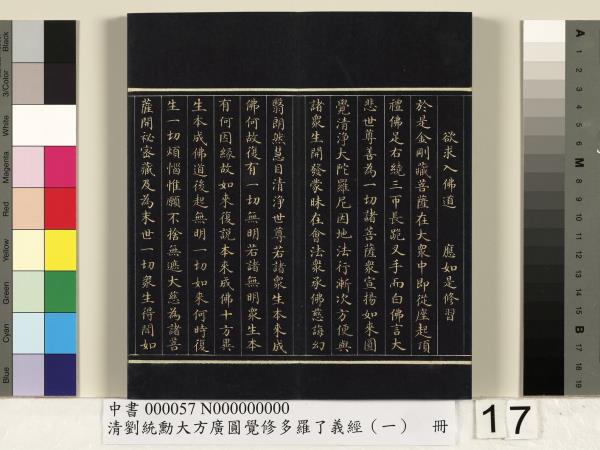 欲求入佛道　應如是修習
於是金剛藏菩薩在大眾中即從座起頂
禮佛足右繞三帀長跪叉手而白佛言大
悲世尊善為一切諸菩薩眾宣揚如來圓
覺清淨大陀羅尼因地法行漸次方便與
諸眾生開發蒙昧在會法眾承佛慈誨幻
翳朗然慧目清淨世尊若諸眾生本來成
佛何故復有一切無明若諸無明眾生本
有何因緣故如來復說本來成佛十方異
生本成佛道後起無明一切如來何時復
生一切煩惱惟願不捨無遮大慈為諸菩
薩開祕密藏及為末世一切眾生得聞如
中書 000057 N000000000
清劉統勳大方廣圓覺修多羅了義經（一） 冊
17
Black
3/Color
White
Magenta
Red
Yellow
Green
Cyan
Blue
A
1
2
3
4
5
6
M
8
9
10
11
12
13
14
15
B
17
18
19